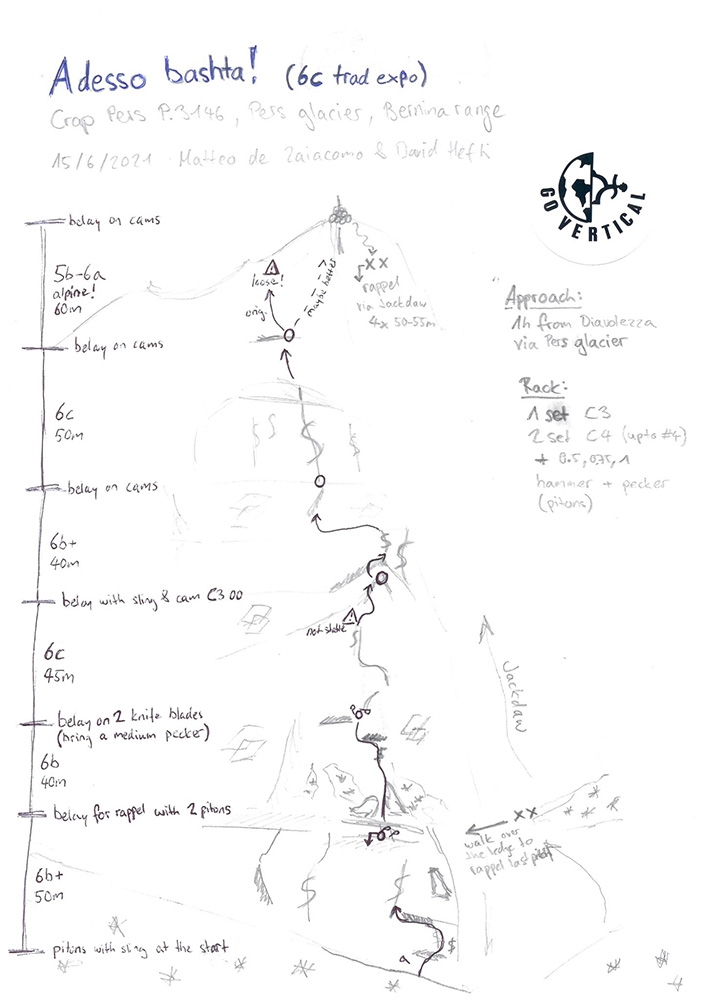 Adesso bashta! (6c trad expo)
Crap Pers P.3146, Pers glacier, Bernina range
15/6/2021 Matteo de Zaiacomo & David Hefti
GO VERTICAL
belay on cams
5b-6a
alpine!
60m
loose!
orig.
maybe better
XX
rappel
via Jackdaw
4x 50-55m
Approach:
1h from Diavolezza
via Pers glacier
Rack:
1 set C3
2 set C4 (upto #4)
+ 0.5, 0.75, 1
hammer + pecker
(pitons)
belay on cams
6c
50m
belay on cams
6b+
40m
belay with sling & cam C3 00
not stable
6c
45m
Jackdaw
belay on 2 knife blades
(bring a medium pecker)
6b
40m
belay for rappel with 2 pitons
XX
walk over
the ledge to
rappel last pitch
6b+
50m
pitons with sling at the start